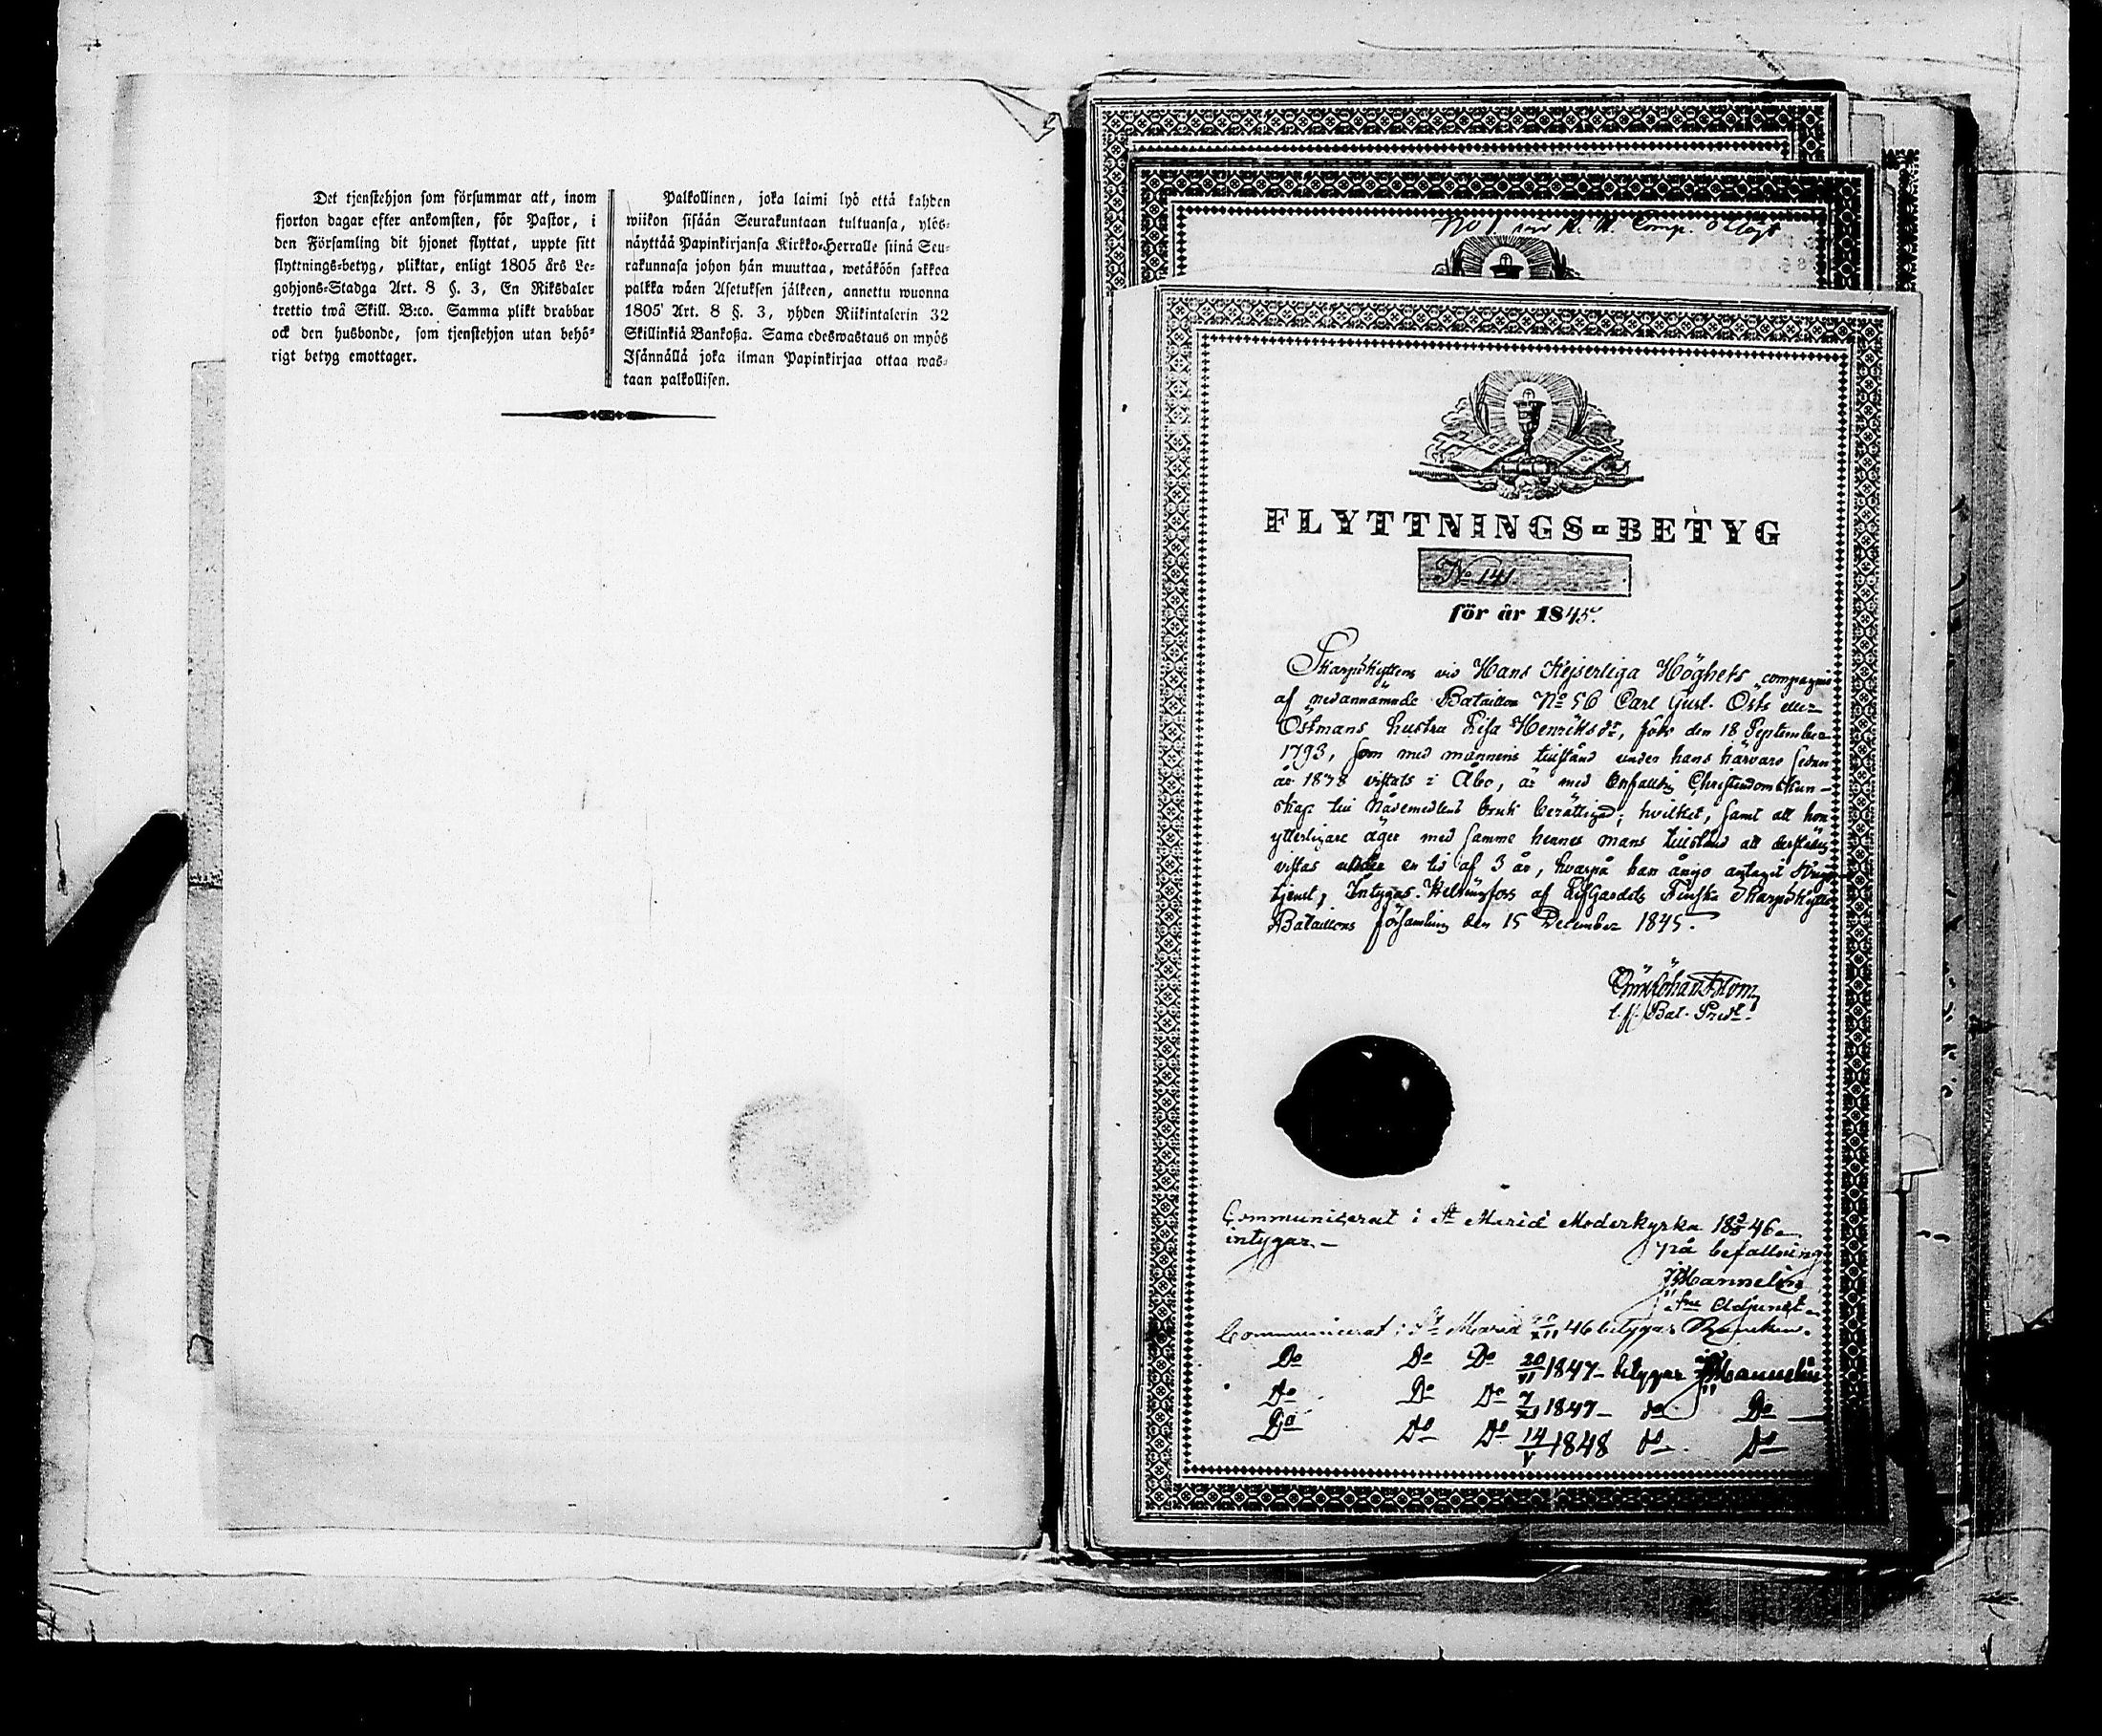 Det tjenstehjon som försummar att, inom
fjorton dagar efter ankomsten, för Pastor, i
den Församling dit hjonet flyttat, uppte sitt
flyttnings-betyg, pliktar, enligt 1805 års Le-
gohjons-Stadga Art. 8 §. 3, En Riksdaler
trettio twå Skill. B:co. Samma plikt drabbar
ock den husbonde, som tjenstehjon utan behö-
rigt betyg emottager.
Palkollinen, joka laimi lyö että kahden
wiikon sisään Seurakuntaan tultuansa, ylös-
näyttää Papinkirjansa Kirkko-Herralle siinä Seu-
rakunnasa johon hän muuttaa, wetäköön sakkoa
palkka wäen Asetuksen jälkeen, annettu wuonna
1805 Art. 8 §. 3, yhden Riikintalerin 32
Skillinkiä Bankoßa. Sama edeswastaus on myös
Isännällä joka ilman Papinkirjaa ottaa was-
taan palkollisen.
No 1 Comp.
FLYTTNINGS-BETYG
No 141
för år 1845.
Skarpskyttens vid Hans Kejserliga Höghets compagnie
af nedannämnde Bataillon No 56 Carl Gust. Östs eller
Östmans hustru Lisa Henriksdr, född den 18 September
1793, som med mannens tillstånd under hans härvaro sedan
år 1838 vistats i Åbo, är med enfaldig Christendomskun-
skap till Nådemedlens bruk berättigad; hvilket, samt att hon
ytterligare äger med samme hennes mans tillstånd att derstädes
vistas under en tid af 3 år, hvarpå han ånyo antagit Krigs-
tjenst, Intygas. Helsingfors af LifGardets Finska Skarpskytte
Bataillons församling den 15 December 1845.
t.f. Bat. Pred.
Communicerat i St Mariæ Moderkyrka 18 46
intygar.
på befallning
Mannelin
Adjunct.
Communicerat i St Mariæ XII 46 betygar
Do Do Do 20/VI 1847 betygar Mannelin
Do Do Do 7/XI 1847 do Do
Do Do Do 14/V 1848 do Do